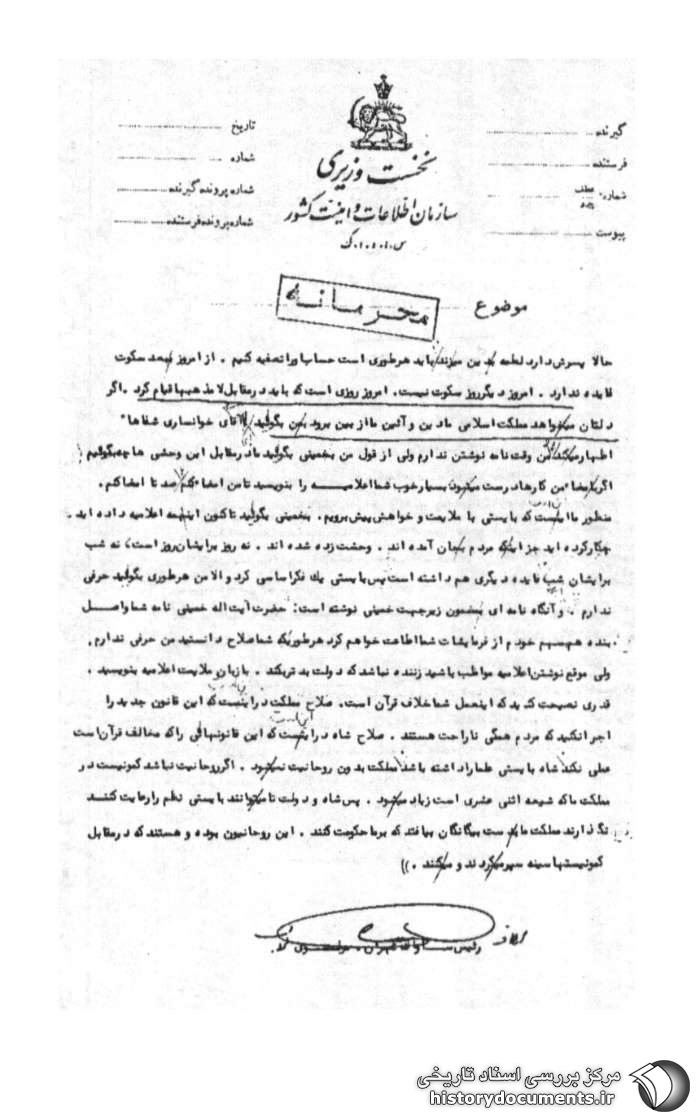 گیرنده
فرستنده
شماره
عطف
پیرو
پیوست
تاریخ
شماره
شماره پرونده گیرنده
شماره پرونده فرستنده
نخست وزیری
سازمان اطلاعات و امنیت کشور
س.ا.و.ا.ک
موضوع
محرمانه
حالا پسرش دارد لطمه بدین میزند باید هرطوری است حساب ورا تصفیه کنیم . از امروز ببعد سکوت
فایده ندارد . امروز دیگر روز سکوت نیست. امروز روزی است که باید در مقابل لامذهبیها قیام کرد .اگر
دلتان میخواهد مملکت اسلامی ما دین و آئین ما از بین برود بمن بگوئید آقای خوانساری شفاها"
اظهار میکند من وقت نامه نوشتن ندارم ولی از قول من بخمینی بگوئید ما در مقابل این وحشی ها چه بگوئیم
اگر با امضاء من کارها درست میشود بسیار خوب شما اعلامیه را بنویسید تا من امضاء کنم صد تا امضا کنم .
منظور ما اینست که بایستی با ملایمت و خواهش پیش برویم . بخمینی بگوئید تاکنون اینهمه اعلامیه داده اید .
چکار کرده اید جز اینکه مردم بجان آمده اند . وحشت زده شده اند . نه روز برایشان روز است، نه شب
برایشان شب فایده دیگری هم داشته است پس بایستی یك فکر اساسی کرد و الا من هر طوری بگوئید حرفی
ندارم . و آنگاه نامه ای بمضمون زیر جهت خمینی نوشته است: حضرت آیت اله خمینی نامه شما واصل
بنده هم بسهم خودم از فرمایشات شما اطاعت خواهم کرد هر طوریکه شما صلاح دانستید من حرفی ندارم .
ولی موقع نوشتن اعلامیه مواظب باشید زننده نباشد که دولت بدتر بکند . با زبان ملایمت اعلامیه بنویسید .
قدری نصیحت کنید که این عمل شما خلاف قرآن است. صلاح مملکت در اینست که این قانون جدید را
اجرا نکنید که مردم همگی ناراحت هستند . صلاح شاه در اینست که این قانونهائی را که مخالف قرآن است
عملی نکند شاه بایستی علما را داشته باشد مملکت بدون روحانیت نمیشود . اگر روحانیت نباشد کمونیست در
مملکت ما که شیعه اثنی عشری است زیاد میشود . پس شاه و دولت تا میتوانند بایستی نظم را رعایت کنند
نگذارند مملکت ما بدست بیگانگان بیافتد که بر ما حکومت کنند . این روحانیون بوده و هستند که در مقابل
کمونیستها سینه سپر میکردند و میکنند . ))
رئیس ساواك تهران . مولوی
مرکز بررسی اسناد تاریخی
historydocuments.ir